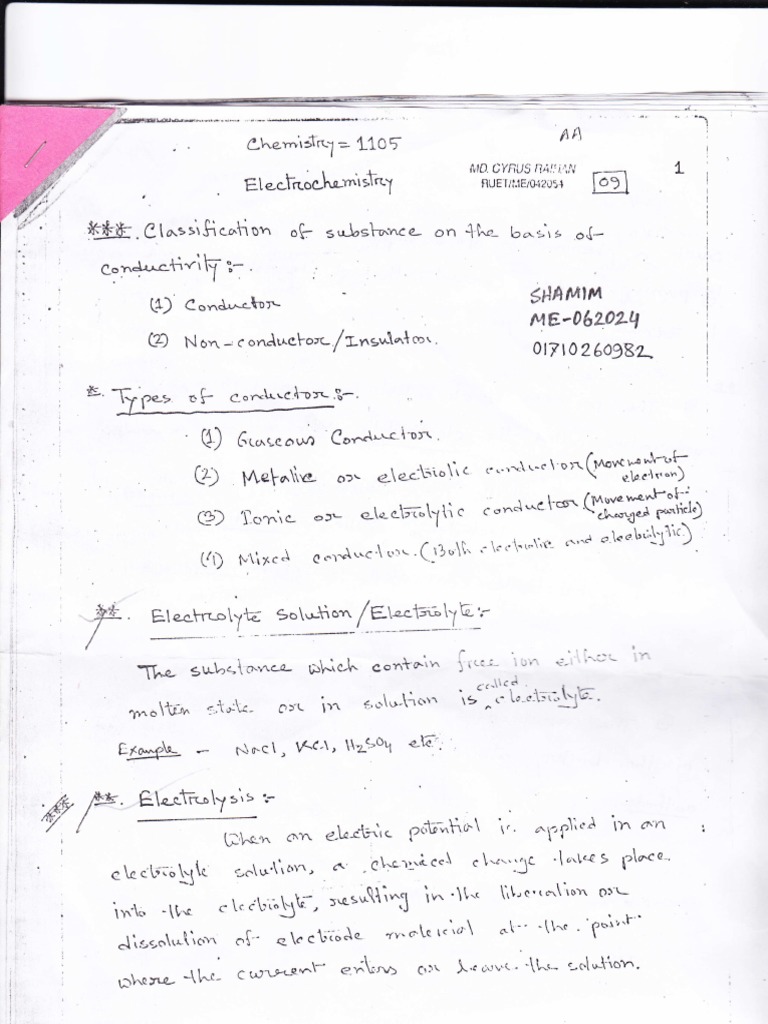 Chemistry = 1105
AA
Electrochemistry
MD. CYRUS RAIHAN
RUET/ME/042054
09
1
***. Classification of substance on the basis of
conductivity:-.
(1) Conductor
(2) Non-conductor/Insulator.
SHAMIM
ME-062024
01710260982
*. Types of conductor:-.
(1) Gaseous Conductor.
(2) Metalic or electrolic conductor (Movement of
electron)
(3) Ionic or electrolytic conductor. (Movement of
charged particle)
(4) Mixed conductor. (Both electrolic and electrolytic)
**. Electrolyte solution/Electrolyte:-
The substance which contain free ion either in
molten state or in solution is called electrolyte.
Example - NaCl, KCl, H2SO4 etc.
*** **. Electrolysis:-
When an electric potential is applied in an
electrolyte solution, a chemical change takes place
into the electrolyte, resulting in the liberation or
dissolution of electrode material at the point
where the current enters or leave the solution.